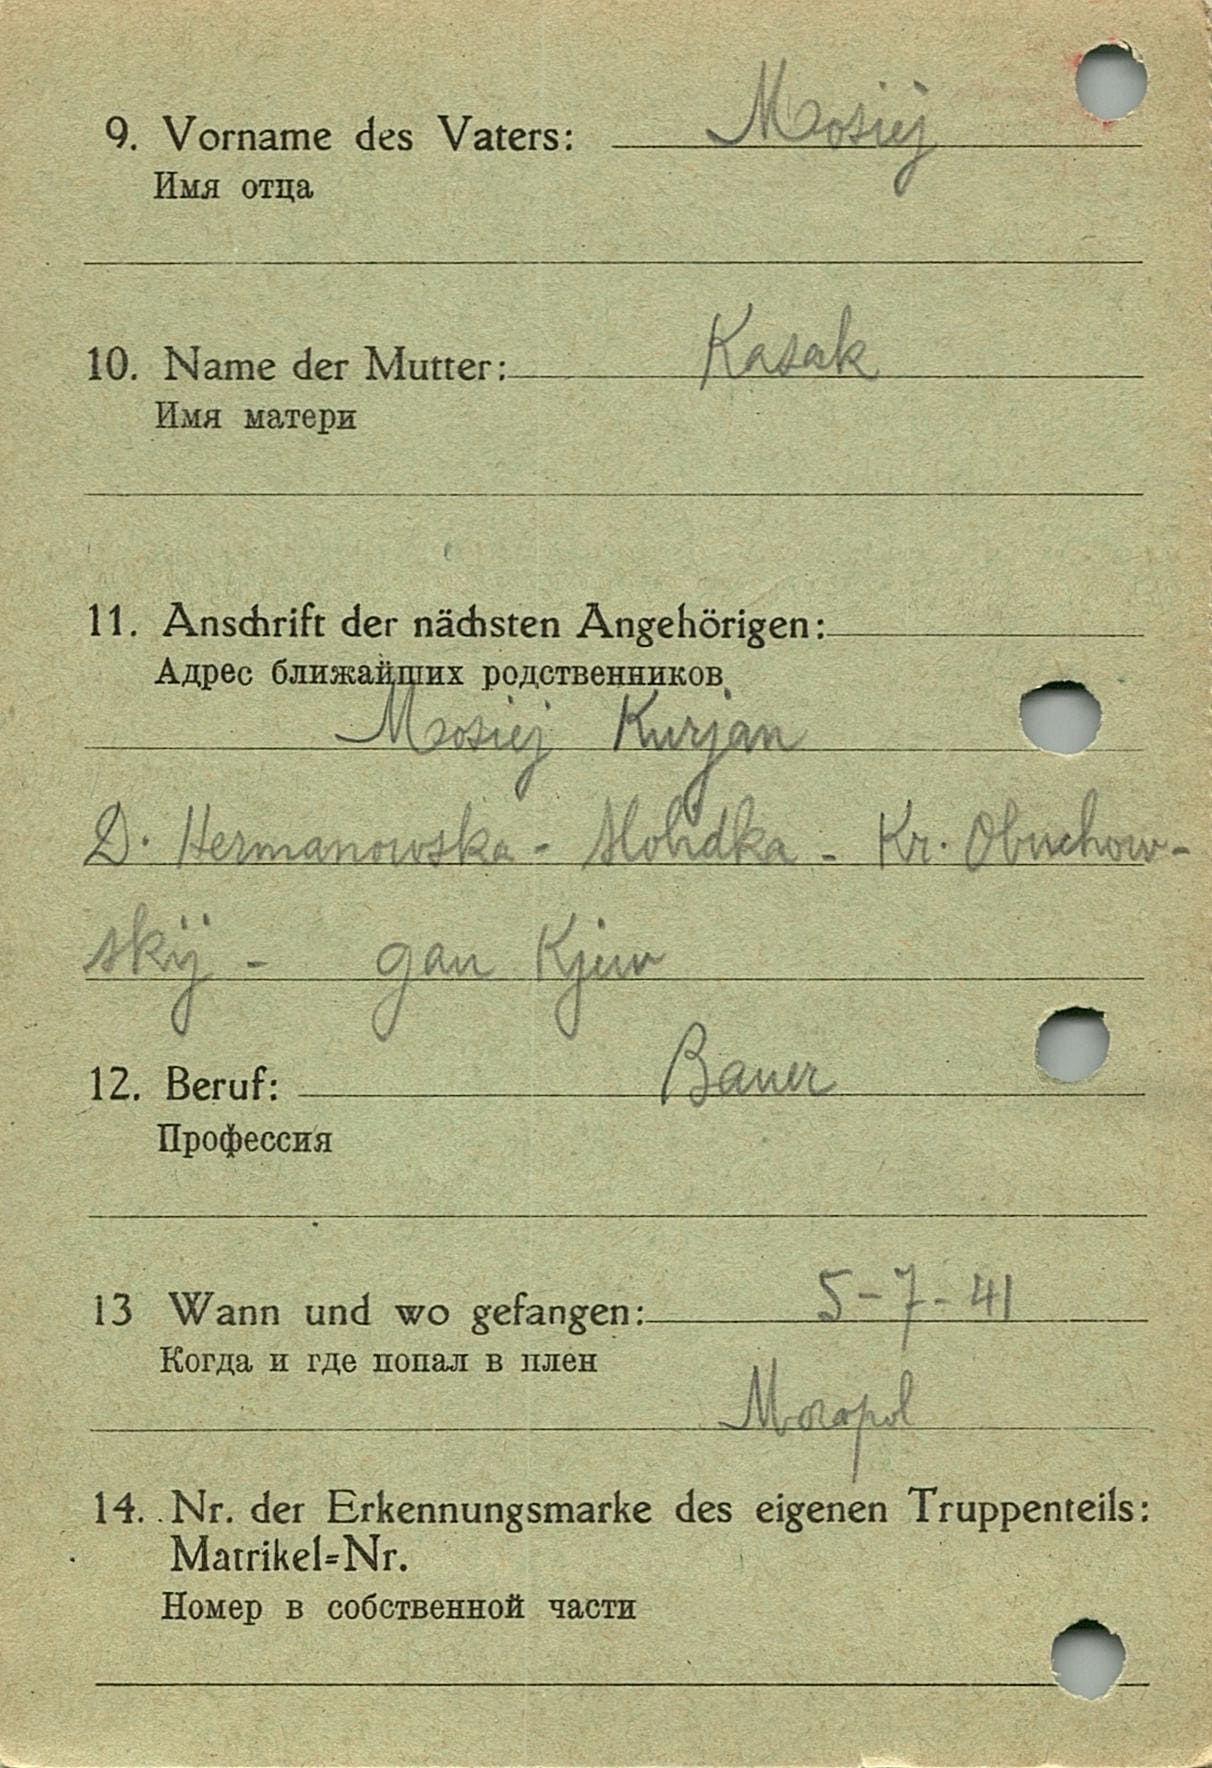 9. Vorname des Vaters: Mosiej
Имя отца
10. Name der Mutter: Kasak
Имя матери
11. Anschrift der nächsten Angehörigen:
Адрес ближайших родственников
Mosiej Kurjan
D. Hermanowska - Slobidka - Kr. Obuchow-
skij - gau Kjew
12. Beruf: Bauer
Профессия
13 Wann und wo gefangen: 5-7-41
Когда и где попал в плен
14. Nr. der Erkennungsmarke des eigenen Truppenteils:
Matrikel=Nr.
Номер в собственной части